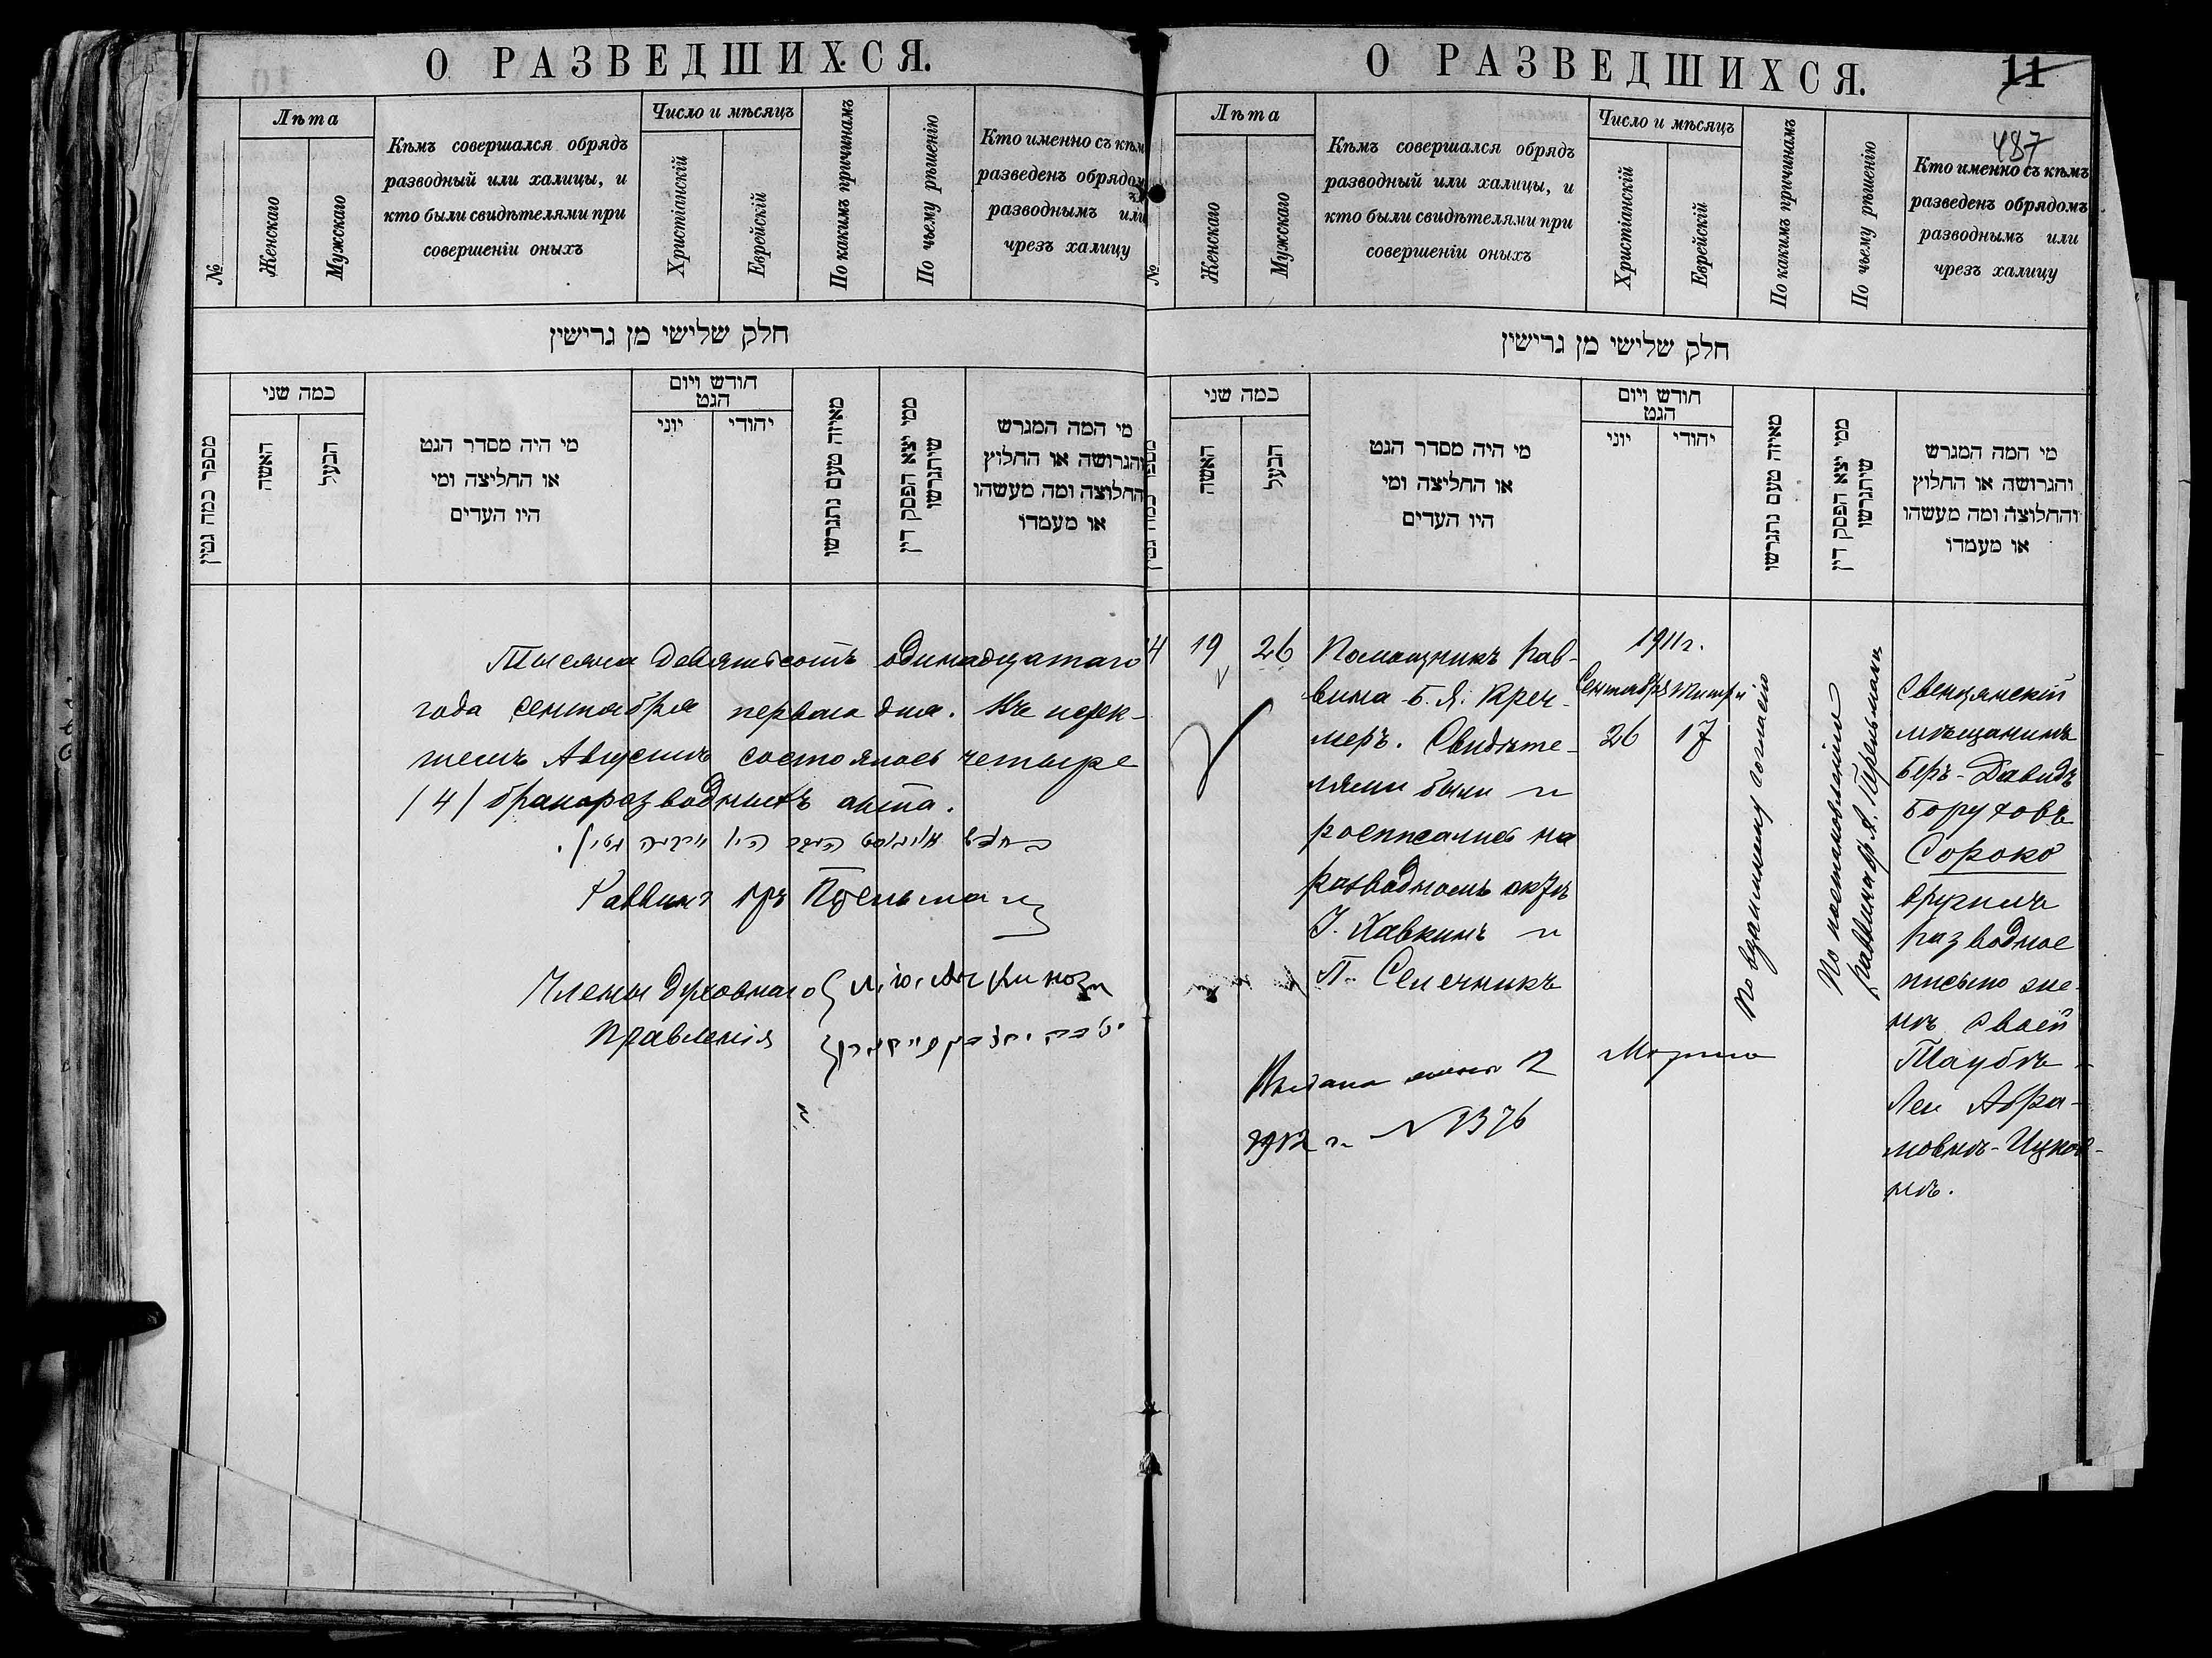 О РАЗВЕДШИХСЯ.
№
Лѣта
Женскаго
Мужскаго
Кѣмъ совершался обрядъ
разводный или халицы, и
кто были свидѣтелями при
совершеніи оныхъ
Число и мѣсяцъ
Христіанскій
Еврейскій
По какимъ причинамъ
По чьему рѣшенію
Кто именно съ кѣм
разведенъ обрядом
разводнымъ или
чрезъ халицу
חלק שלישי מן גרישין
מספר כמה גטין
כמה שני
האשה
הבעל
מי היה מסדר הגט
או החליצה ומי
היו העדים
חודש ויום
הגט
יוני
יהודי
מאיזה טעם נתגרשו
ממי יצא הפסק דין
שיתגרשו
מי המה המגרש
והגרושה או החלוץ
והחלוצה ומה מעשהו
או מעמדו
Тысяча девятьсотъ одинадцатаго
года сентября перваго дня. Въ истек-
шемъ Августѣ состоялось четыре
/4/ бракоразводныхъ акта.
Раввинъ
Члены Духовнаго
Правленія
О РАЗВЕДШИХСЯ.
11
487
№
Лѣта
Женскаго
Мужскаго
Кѣмъ совершался обрядъ
разводный или халицы, и
кто были свидѣтелями при
совершеніи оныхъ
Число и мѣсяцъ
Христіанскій
Еврейскій
По какимъ причинамъ
По чьему рѣшенію
Кто именно съ кѣмъ
разведенъ обрядомъ
разводнымъ или
чрезъ халицу
חלק שלישי מן גרישין
כמה שני
האשה
הבעל
מי היה מסדר הגט
או החליצה ומי
היו העדים
חודש ויום
הגט
יוני
יהודי
מאיזה טעם נתגרשו
ממי יצא הפסק דין
שיתגרשו
מי המה המגרש
והגרושה או החלוץ
והחלוצה ומה מעשהו
או מעמדו
4
19
26
Помощникъ Рав-
вина Б. Я. Креч-
меръ. Свидѣте-
лями были и
росписались на
разводномъ актѣ
І. Хавкинъ и
П. Селечникъ
1911 г.
Сентября Тишри
26 17
По взаимному согласію
По постановленію
раввина Гр. А. Перельмана
Свенцянскій
мѣщанинъ
Беръ-Давидъ
Боруховъ
Сороко
вручилъ
разводное
письмо же-
нѣ своей
Таубѣ-
Леи Абра-
мовнѣ-Ицков-
нѣ.
Выдана 12 Марта
1912 г. № 1376